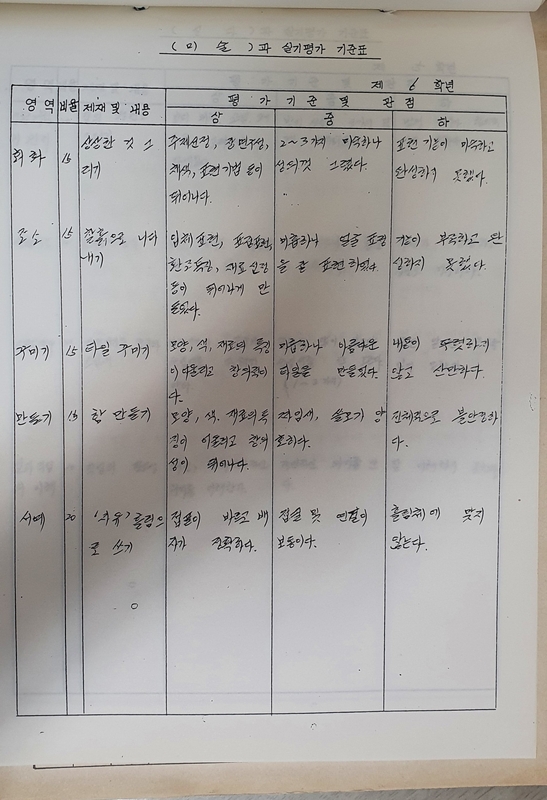 ( 미 술 ) 과 실기평가 기준표
제 6 학년
영 역 비율 제재 및 내용 평 가 기 준 및 관 점
상 중 하
회 화
상상한 것 그
리기
주제선정, 화면구성,
채색, 표현기법 등이
뛰어나다.
2~3가지 미숙하나
성의껏 그렸다.
표현 기능이 미숙하고
완성하지 못했다.
조 소 15 찰흙으로 나타
내기
입체 표현,
등이 뛰어나게 만
들었다.
미흡하나 얼굴 표정
을 잘 표현 하였다.
부족하고 완
성하지 못했다.
꾸미기 15 타일 꾸미기
모양, 색, 재료의 특징
이 어울리고 창의적이
다.
미흡하나 아름다운
타일을 만들었다.
내용이 뚜렷하지
않고 산만하다.
만들기 15 함 만들기
모양, 색, 재료의 특
징이 어울리고 창의
성이 뛰어나다.
짜임새, 쓸모가 양
호하다.
전체적으로 불안정하
다.
서예 20 흘림으
로 쓰기
접필이 바르고 배
자가 정확하다.
접필 및 연결이
보통이다.
흘림체에 맞지
않는다.